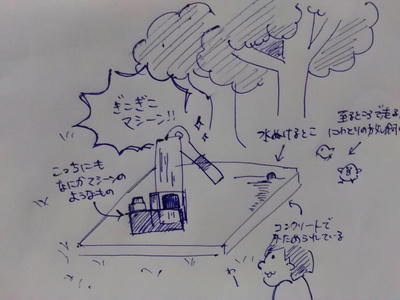 ぎこぎこ
マシーン!!
水ぬけるとこ
至るところで走る、
にわとりの放し飼い
こっちにも
なにかマシーンの
ようなもの
コンクリートで
かためられている